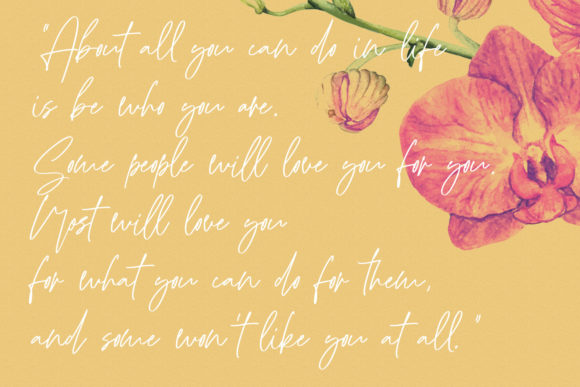 "About all you can do in life
is be who you are.
Some people will love you for you.
Most will love you
for what you can do for them,
and some won't like you at all."